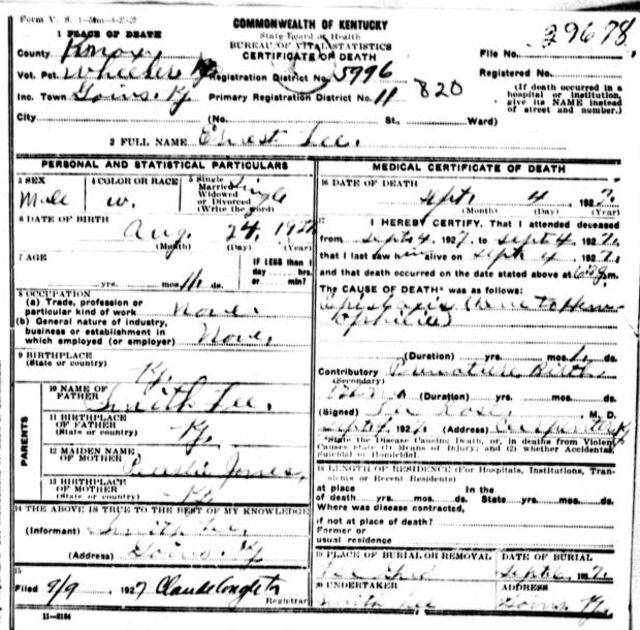 Form V. S. 1
COMMONWEALTH OF KENTUCKY
State Board of Health
BUREAU OF VITAL STATISTICS
CERTIFICATE OF DEATH
1 PLACE OF DEATH
County Knox
Vot. Pct. Wheeler
Inc. Town Goins. Ky
City
Registration District No. 5996
Primary Registration District No. 11 820
(No. St., Ward)
File No. 29678
Registered No.
(If death occurred in a
hospital or institution,
give its NAME instead
of street and number.)
2 FULL NAME Ernest Lee.
PERSONAL AND STATISTICAL PARTICULARS
3 SEX
Male
4 COLOR OR RACE
w.
5 Single
Married
Widowed
or Divorced
(Write the word)
Single
6 DATE OF BIRTH
Aug. 24, 1927
(Month) (Day) (Year)
7 AGE
yrs. mos. 11 ds.
IF LESS than 1
day hrs.
or min?
8 OCCUPATION
(a) Trade, profession or
particular kind of work None.
(b) General nature of industry,
business or establishment in
which employed (or employer) None.
9 BIRTHPLACE
(State or country)
Ky.
PARENTS
10 NAME OF
FATHER
Smith Lee.
11 BIRTHPLACE
OF FATHER
(State or country)
Ky.
12 MAIDEN NAME
OF MOTHER
Jones,
13 BIRTHPLACE
OF MOTHER
(State or country)
Ky
14 THE ABOVE IS TRUE TO THE BEST OF MY KNOWLEDGE
(Informant) Smith Lee.
(Address) Goins. Ky
15
Filed 9/9 1927 Claude Congleton
Registrar
11-3184
MEDICAL CERTIFICATE OF DEATH
16 DATE OF DEATH
Sept. 4, 1927.
(Month) (Day) (Year)
17
I HEREBY CERTIFY, That I attended deceased
from Sept 4, 1927, to Sept 4, 1927,
that I last saw him alive on Sept 4, 1927,
and that death occurred on the date stated above at m.
The CAUSE OF DEATH* was as follows:
Epistaxis (Due to Hem-
ophilia)
(Duration) yrs. mos. 1 ds.
Contributory Premature Birth
(Secondary)
(Duration) yrs. mos. ds.
(Signed) M. D.
Sept 4, 1927 (Address) Ky
*State the Disease Causing Death, or, in deaths from Violent
Causes state (1) Means of Injury; and (2) whether Accidental,
Suicidal or Homicidal.
18 LENGTH OF RESIDENCE (For Hospitals, Institutions, Tran-
sients or Recent Residents)
at place In the
of death yrs. mos. ds. State yrs. mos. ds.
Where was disease contracted,
if not at place of death?
Former or
usual residence
19 PLACE OF BURIAL OR REMOVAL
Lee
DATE OF BURIAL
Sept 6, 1927.
20 UNDERTAKER
Smith Lee
ADDRESS
Goins. Ky.